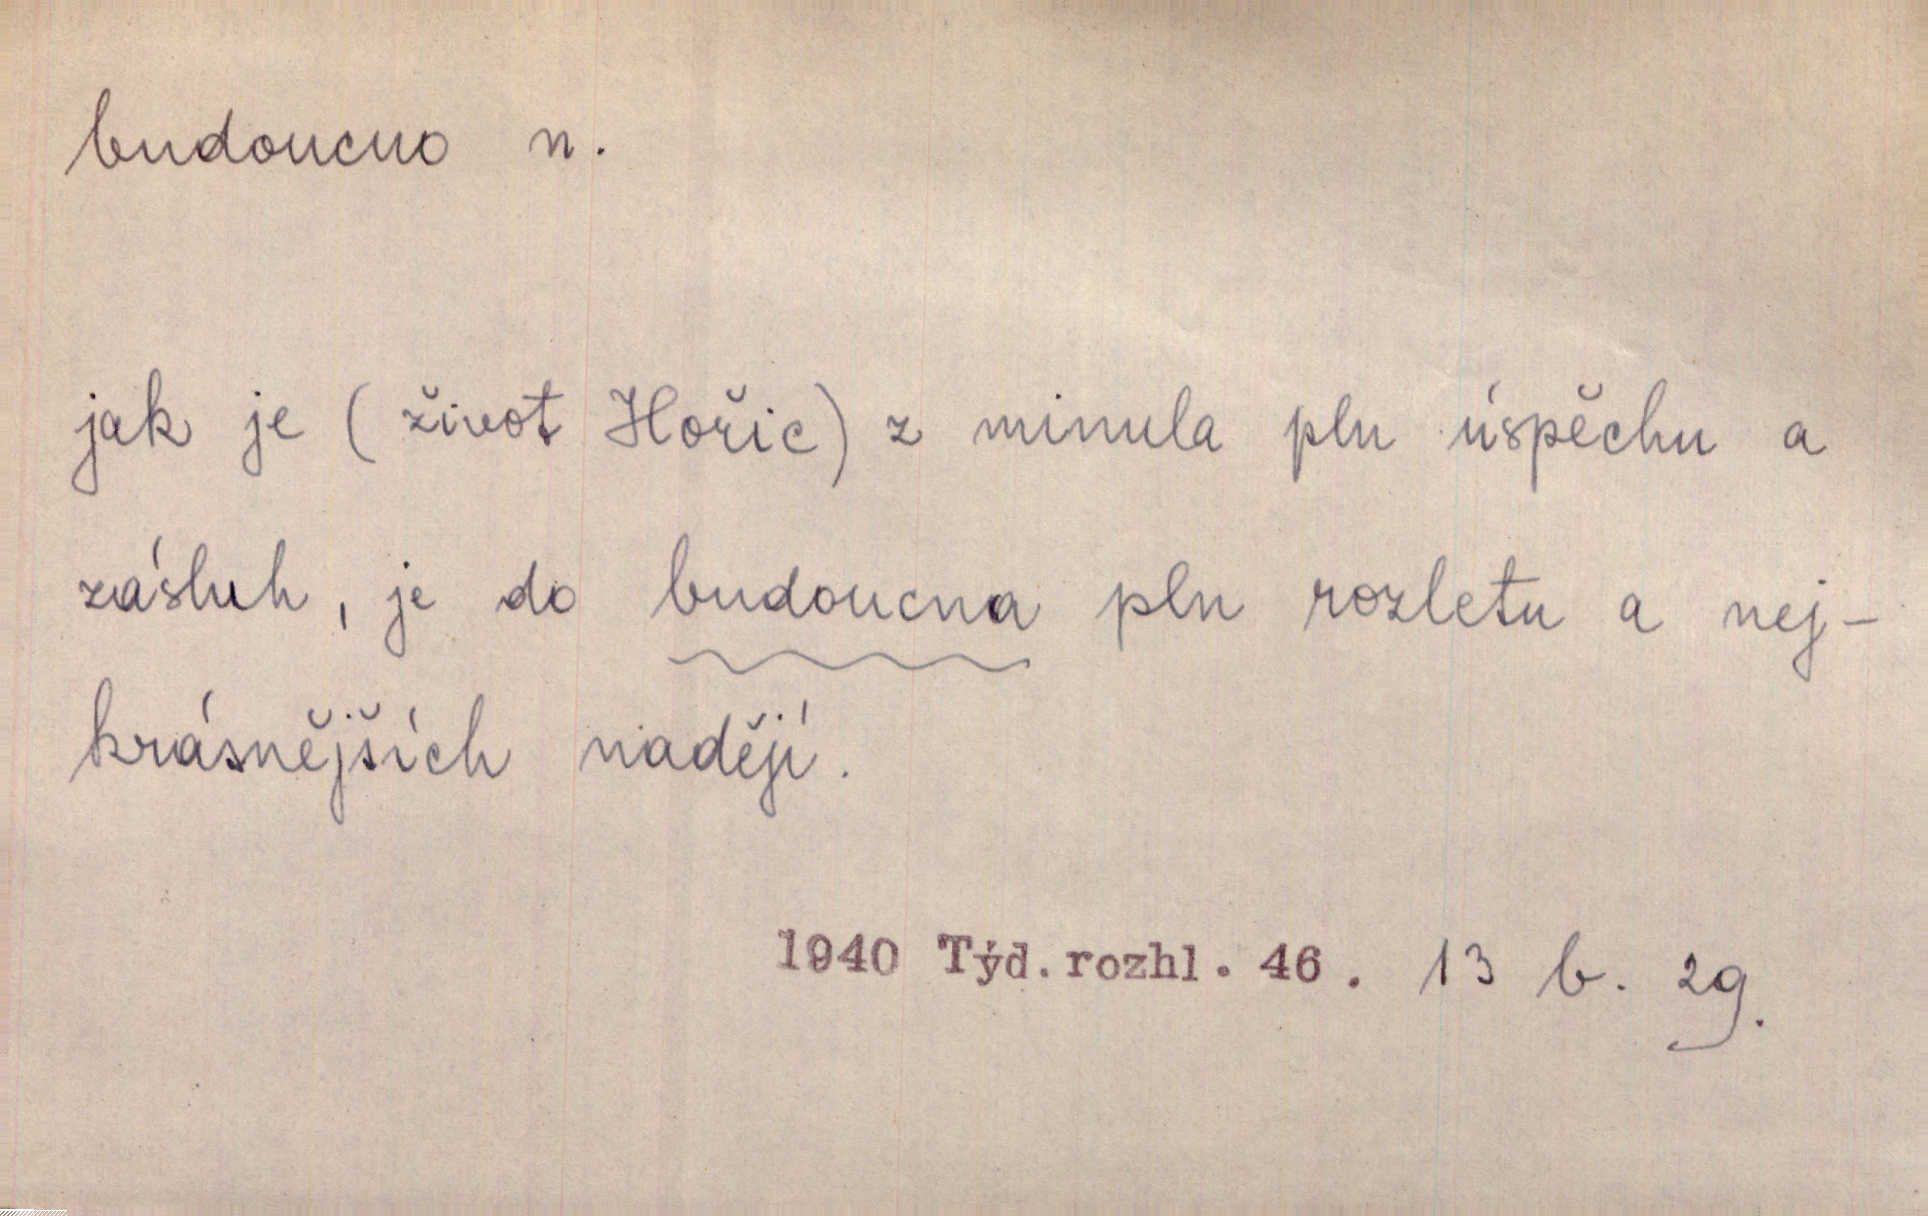 budoucno n.
jak je (život Hořic) z minula pln úspěchu a
zásluh, je do budoucna pln rozletu a nej-
krásnějších nadějí.
1940 Týd. rozhl. 46. 13 b. 29.